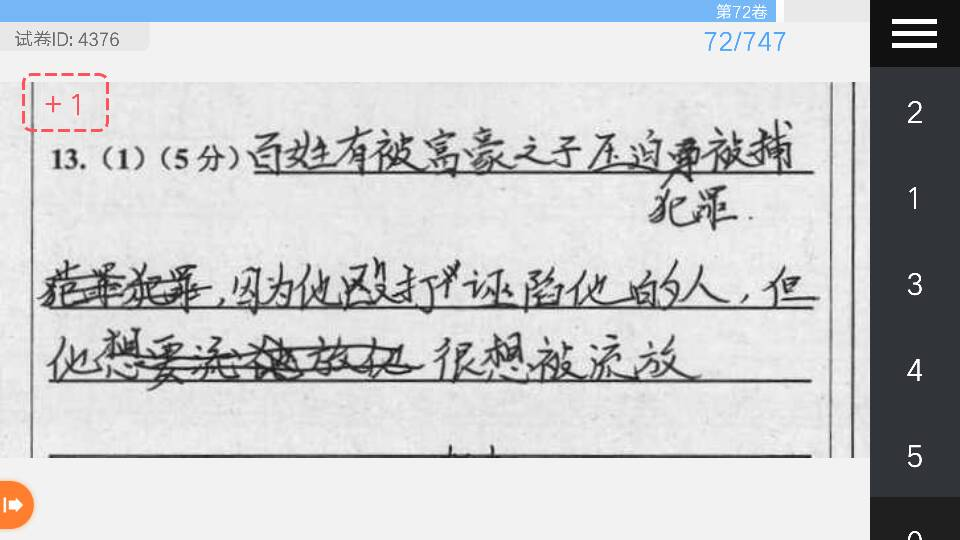 第72卷
试卷ID: 4376
72/747
+ 1
13.（1）（5 分）百姓有被富豪之子压迫而被捕
犯罪.
，因为他殴打诬陷他的人，但
他想 很想被流放
2
1
3
4
5
0